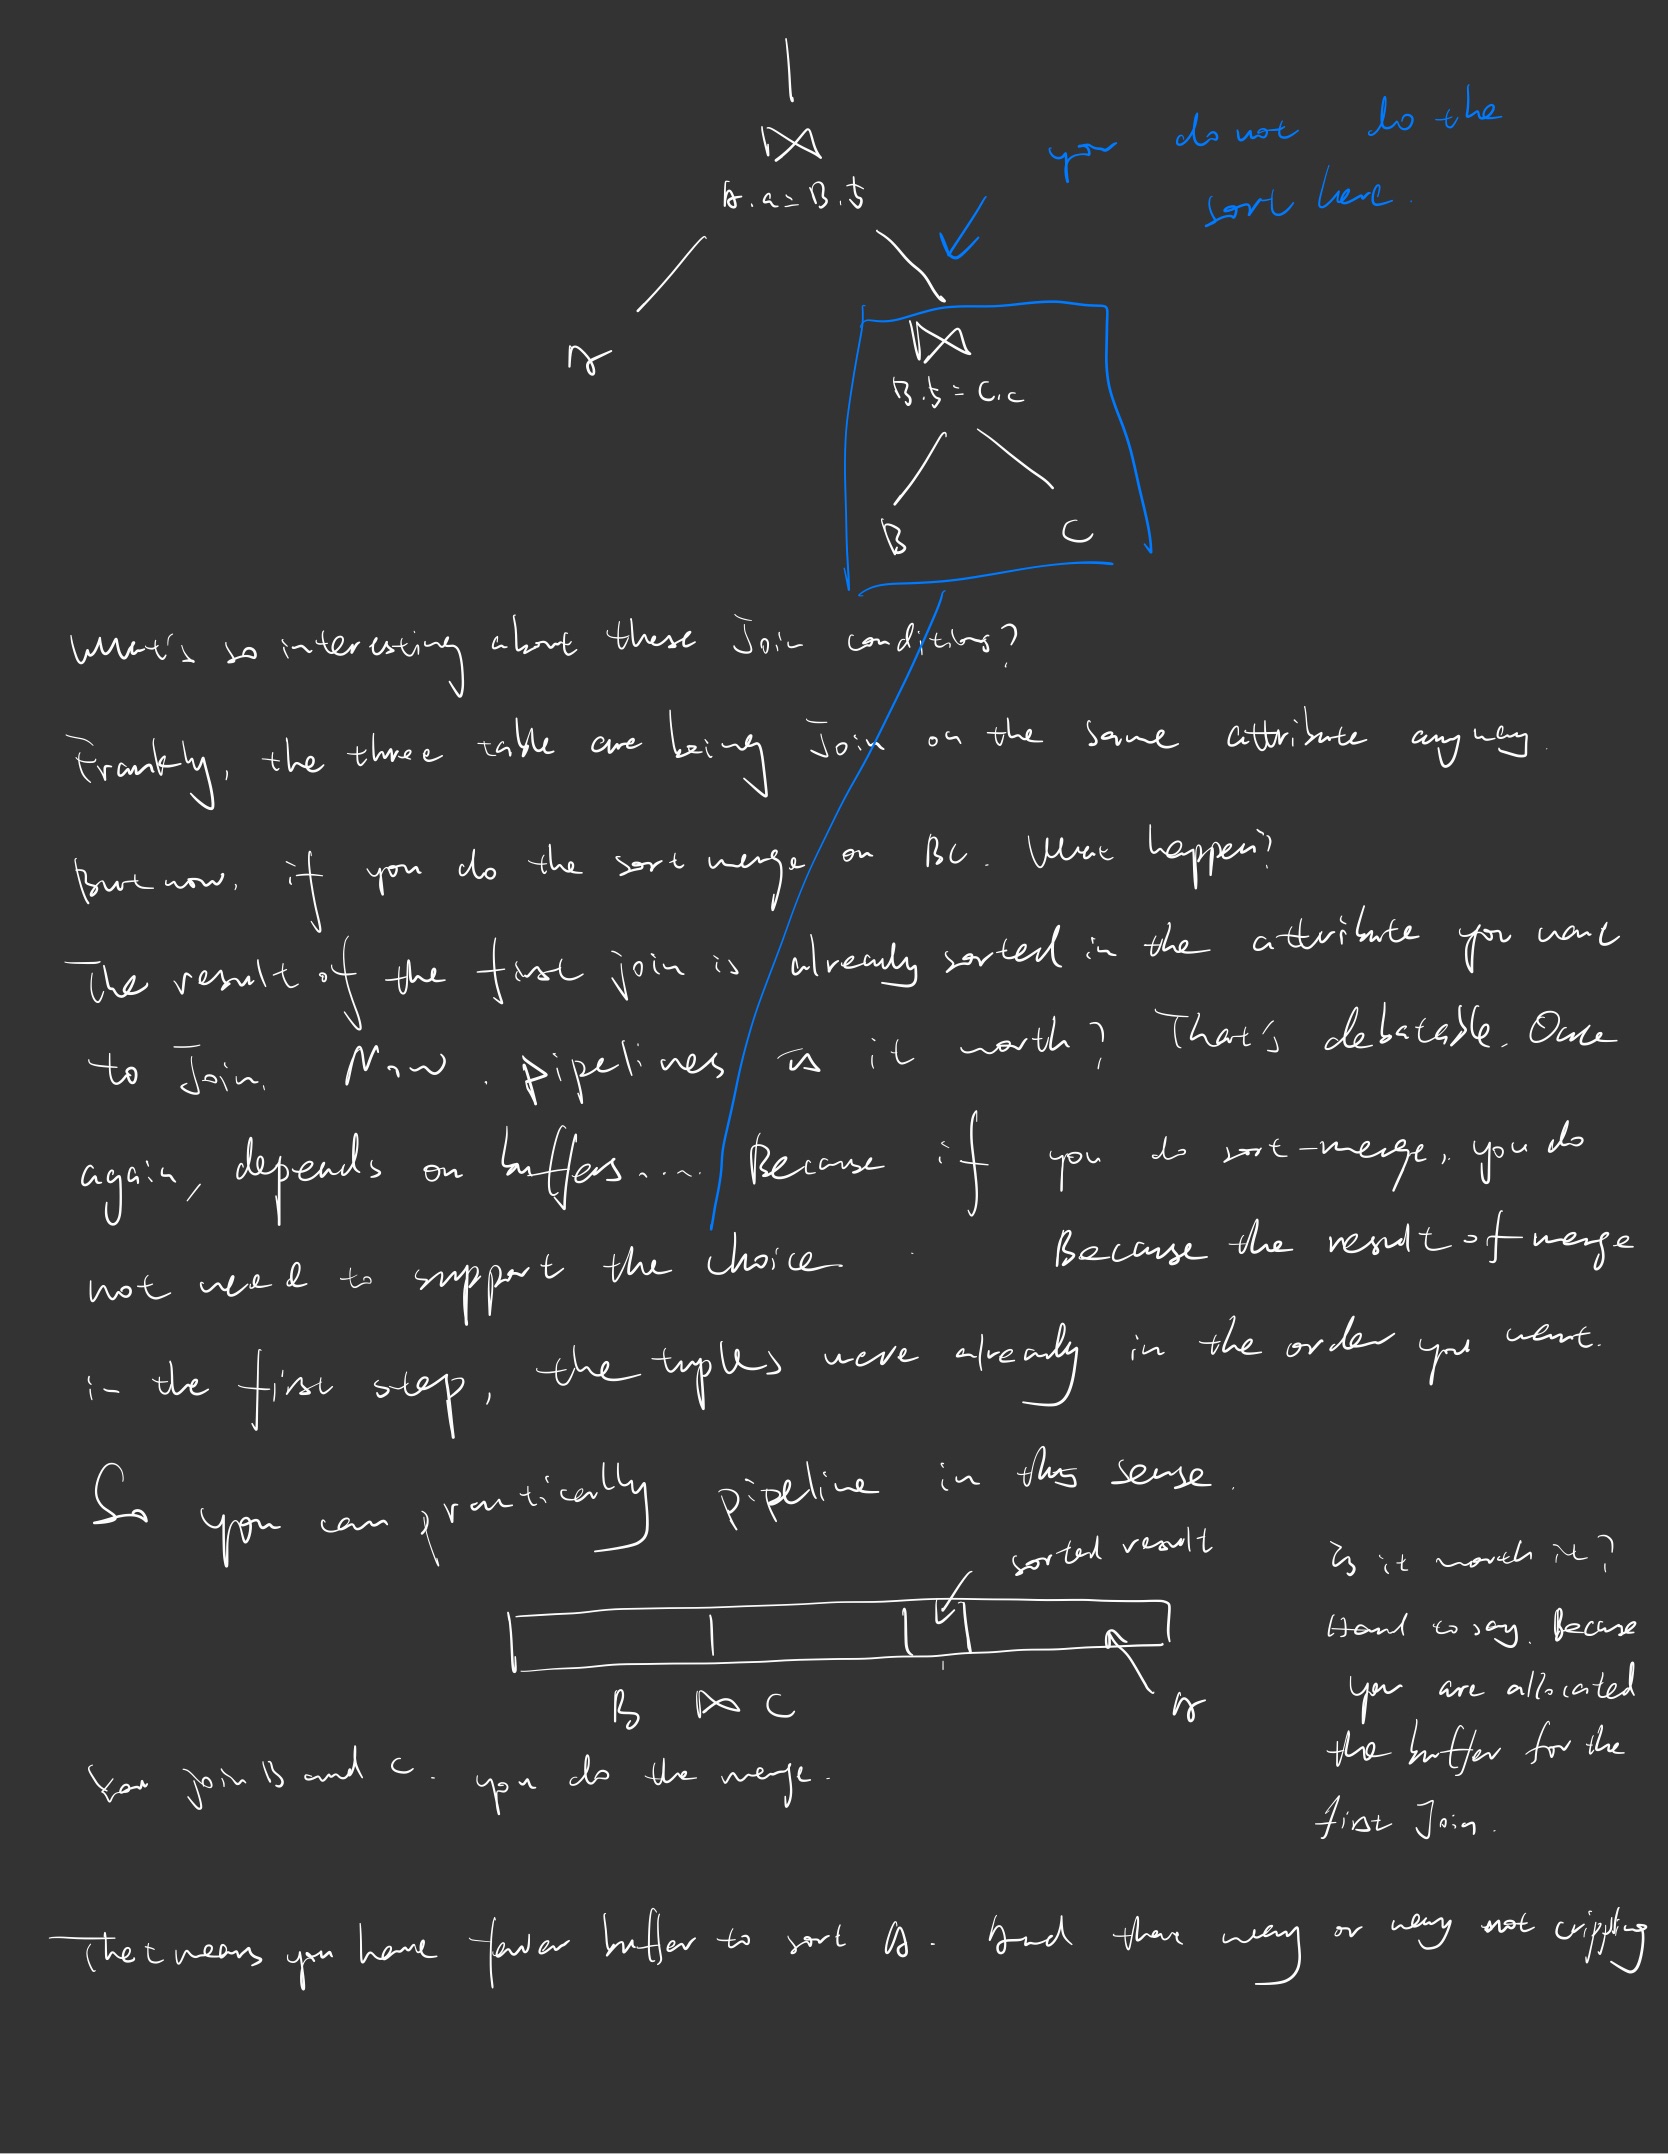 ⋈
you do not do the
A.a = B.b
sort here.
A
⋈
B.b = C.c
B C
What's so interesting about these Join conditions?
Frankly, the three table are being Join on the same attribute anyway.
But now, if you do the sort merge on BC. What happen?
The result of the first join is already sorted in the attribute you want
to Join. Now. pipelines is it worth? That's debatable. Once
again, depends on buffers.... Because if you do sort-merge, you do
not need to support the choice Because the result of merge
in the first step, the tuples were already in the order you want.
So you can practically pipeline in this sense.
sorted result
B ⋈ C
A
is it worth it?
Hard to say. Because
you are allocated
the buffer for the
first Join.
join B and C. you do the merge.
That means you have fewer buffer to sort A. And that may or may not crippling